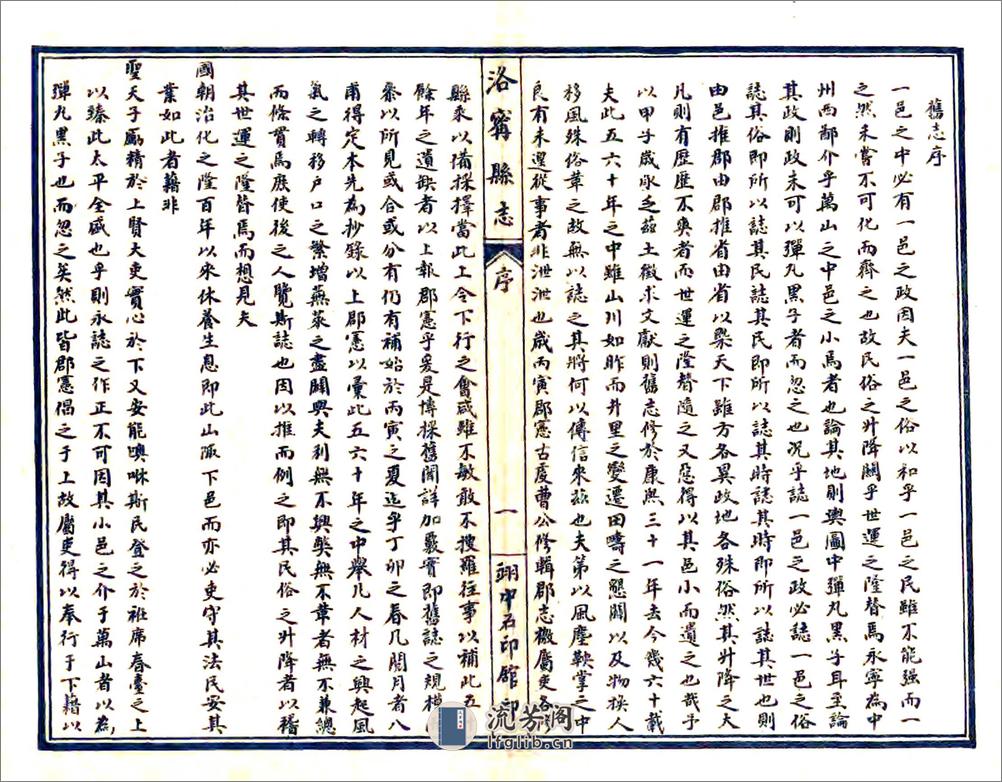 舊志序
一邑之中必有一邑之政因夫一邑之俗以和乎一邑之民雖不能强而一
之然未嘗不可化而齊之也故民俗之升降關乎世運之隆替焉永寧為中
州西鄙介乎萬山之中邑之小焉者也論其地則輿圖中彈丸黑子耳至論
其政則政未可以彈丸黑子者而忽之也况乎誌一邑之政必誌一邑之俗
誌其俗即所以誌其民誌其民即所以誌其時誌其時即所以誌其世也則
由邑推郡由郡推省由省以槩天下雖方各異政地各殊俗然其升降之大
凡則有歷歷不爽者而世運之隆替隨之又惡得以其邑小而遺之也哉予
以甲子歲承乏茲土徵求文獻則舊志修於康熙三十一年去今幾六十載
夫此五六十年之中雖山川如昨而井里之變遷田疇之懇闢以及物換人
移風殊俗革之故無以誌之其將何以傳信來茲也夫第以風塵鞅掌之中
良有未遑從事者非泄泄也歲丙寅郡憲古虞曹公修輯郡志檄屬吏各
洛寗縣志
序
一
翊中石印館印
縣乘以備採擇當此上令下行之會咸雖不敏敢不搜羅往事以補此五
餘年之遺缺者以上報郡憲乎爰是博採舊聞詳加覈實即舊誌之規模
叅以所見或合或分有仍有補始於丙寅之夏迄乎丁卯之春凡閱月者八
甫得定本先為抄錄以上郡憲以彙此五六十年之中舉凡人材之興起風
氣之轉移户口之繁增蕪萊之盡闢與夫利無不興獘無不革者無不兼總
而條貫焉庶使後之人覽斯誌也因以推而例之即其民俗之升降者以稽
其世運之隆替焉而想見夫
國朝治化之隆百年以來休養生息即此山陬下邑而亦必吏守其法民安其
業如此者藉非
聖天子勵精於上賢大吏實心於下又安能噢咻斯民登之於袵席春臺之上
以臻此太平全盛也乎則永誌之作正不可因其小邑之介于萬山者以為
彈丸黑子也而忽之矣然此皆郡憲倡之于上故屬吏得以奉行于下藉以
流芳阁
lfglib.cn